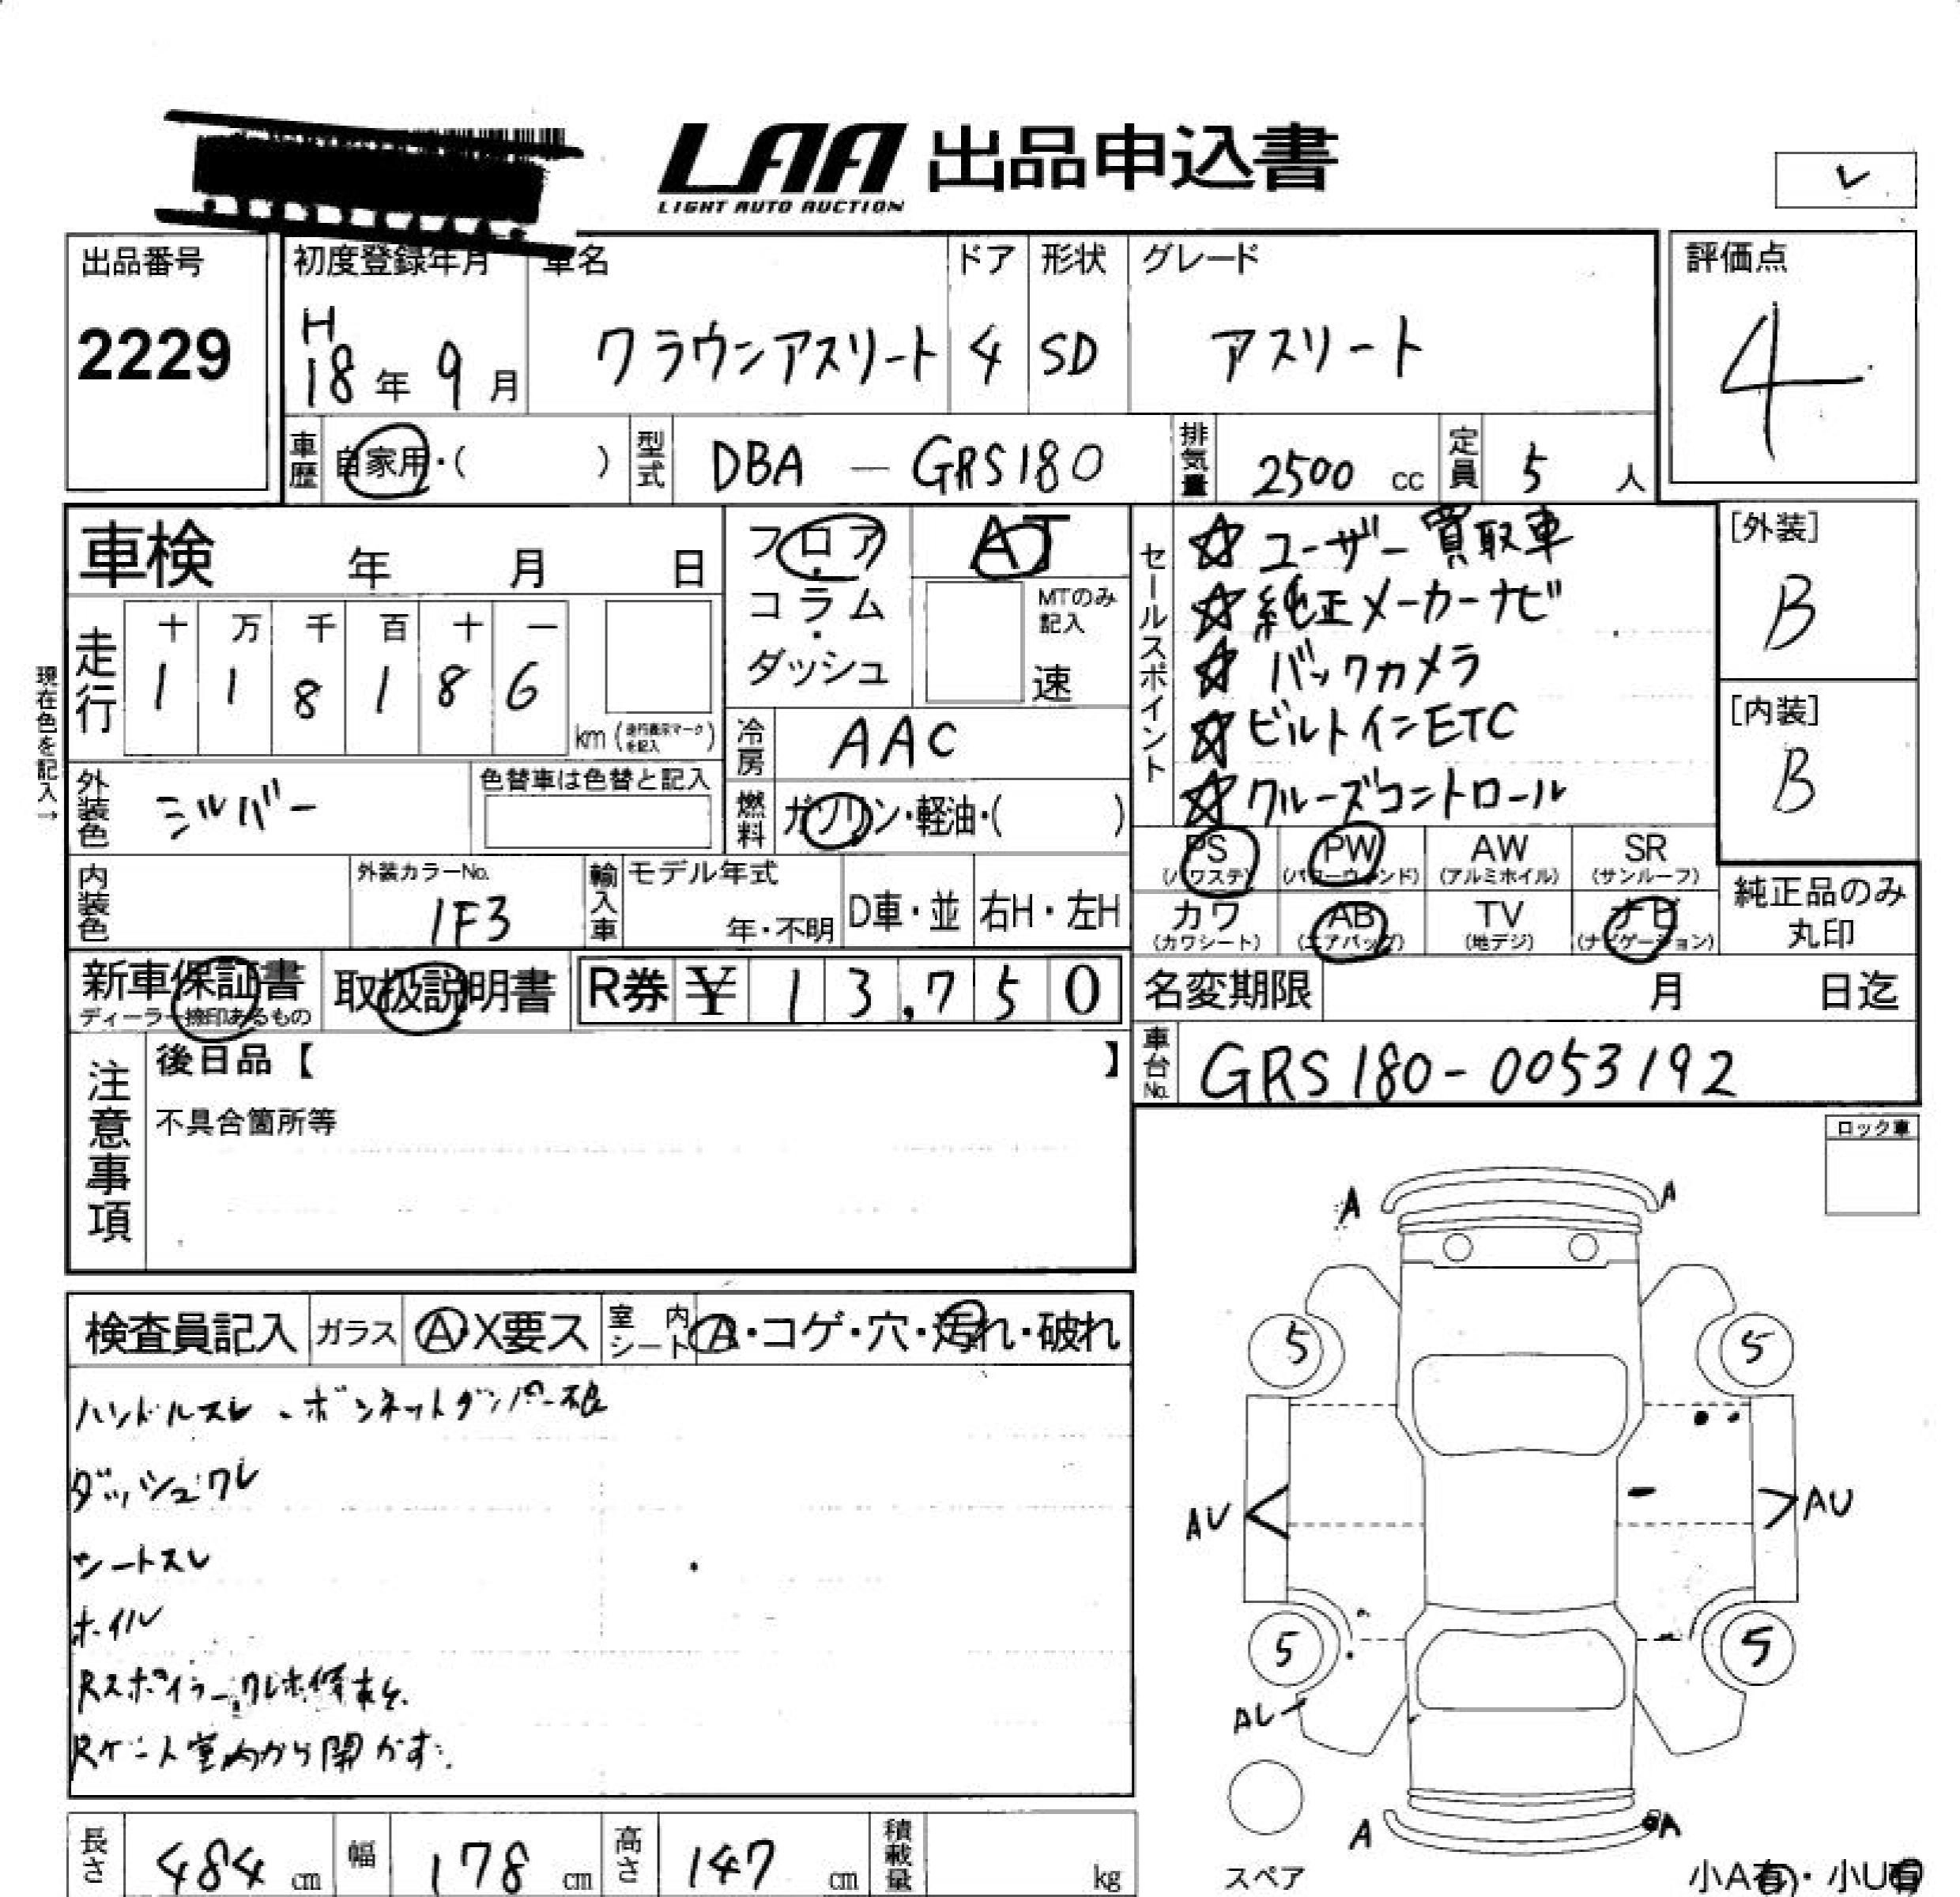 LAA 出品申込書
LIGHT AUTO AUCTION
レ
出品番号
2229
初度登録年月
H
18年 9月
車名
クラウンアスリート
ドア
4
形状
SD
グレード
アスリート
評価点
4
車歴 自家用・( )
型式 DBA - GRS180
排気量 2500 cc
定員 5 人
車検 年 月 日
走行
十 万 千 百 十 一
1 1 8 1 8 6
km (走行表示マークを記入)
現在色を記入→
フロア・コラム・ダッシュ
AT
MTのみ記入
速
冷房 AAC
燃料 ガソリン・軽油・( )
外装色 シルバー
色替車は色替と記入
内装色
外装カラーNo.
1F3
輸入車
モデル年式
年・不明
D車・並
右H・左H
セールスポイント
☆ ユーザー買取車
☆ 純正メーカーナビ
☆ バックカメラ
☆ ビルトインETC
☆ クルーズコントロール
[外装]
B
[内装]
B
PS (パワステ)
PW (パワーウィンド)
AW (アルミホイル)
SR (サンルーフ)
カワ (カワシート)
AB (エアバッグ)
TV (地デジ)
ナビ (ナビゲーション)
純正品のみ
丸印
新車保証書
ディーラー捺印あるもの
取扱説明書
R券 ¥ 13,750
名変期限 月 日迄
車台No. GRS180-0053192
注意事項
後日品【 】
不具合箇所等
ロック車
検査員記入
ガラス Ⓐ・X要ス
室内シート A・コゲ・穴・汚れ・破れ
ハンドルスレ、ボンネットダンパー不良
ダッシュワレ
シートスレ
ホイル
Rスポイラーワレ補修あと
Rゲート室内から開かず
A A
5 5
AU AU
5 5
AU
A A
スペア
小A有・小U有
長さ 484 cm
幅 178 cm
高さ 147 cm
積載量 kg